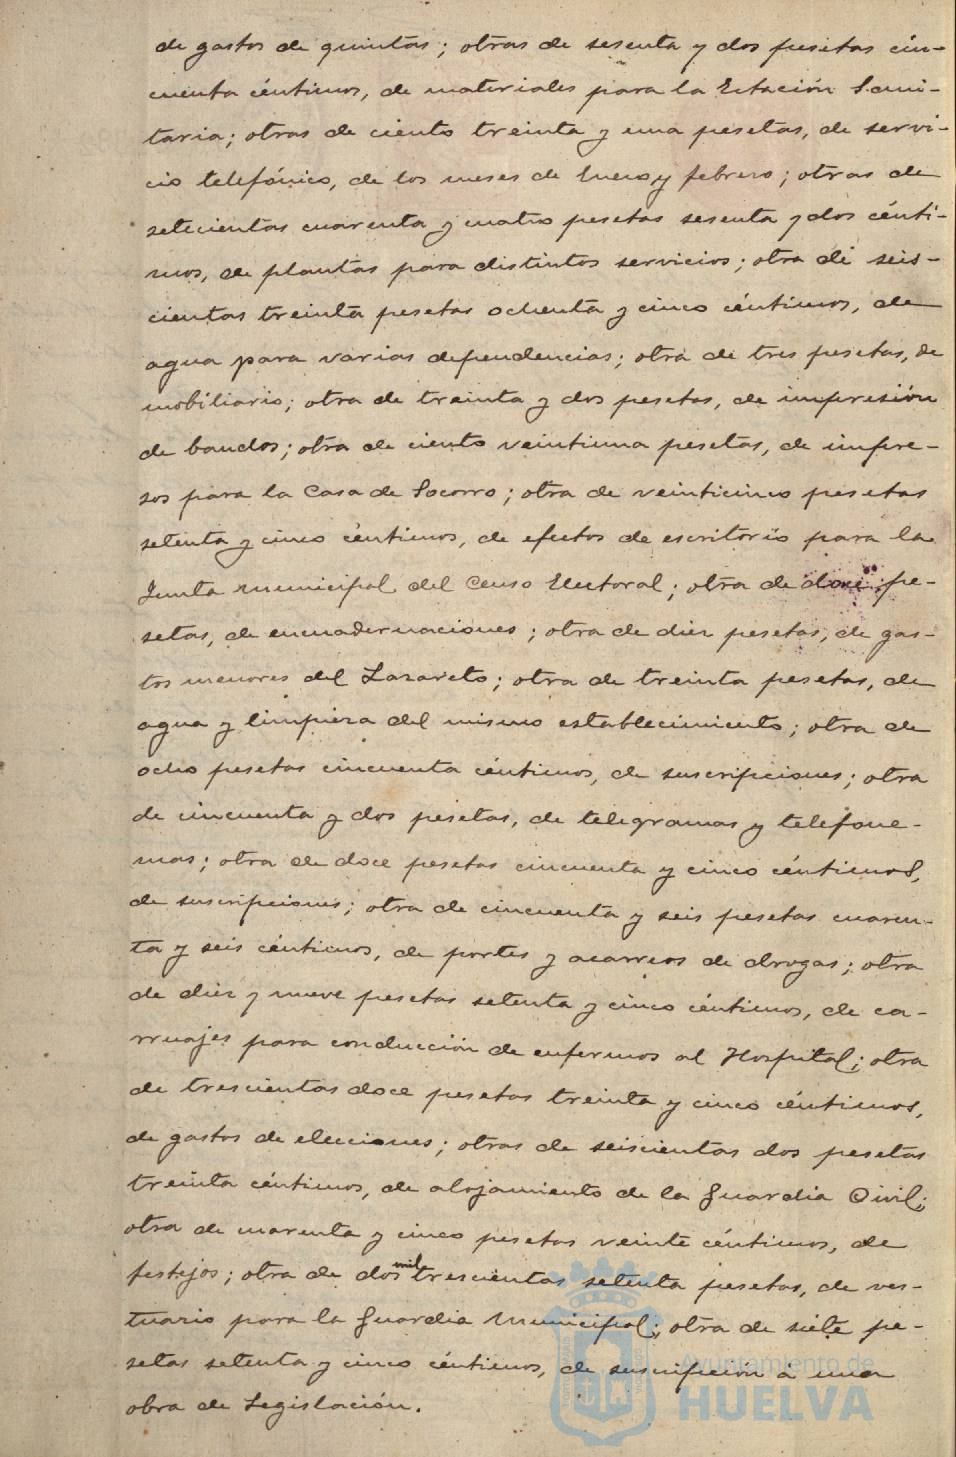 de gastos de quintas; otras de sesenta y dos pesetas cin-
cuenta céntimos, de materiales para la Estación Sani-
taria; otras de ciento treinta y una pesetas, de servi-
cio telefónico, de los meses de Enero y febrero; otras de
setecientas cuarenta y cuatro pesetas sesenta y dos cénti-
mos, de plantas para distintos servicios; otra de seis-
cientas treinta pesetas ochenta y cinco céntimos, de
agua para varias dependencias; otra de tres pesetas, de
mobiliario; otra de treinta y dos pesetas, de impresión
de bandos; otra de ciento veintiuna pesetas, de impre-
sos para la Casa de Socorro; otra de veinticinco pesetas
setenta y cinco céntimos, de efectos de escritorio para la
Junta Municipal del Censo Electoral; otra de doce pe-
setas, de encuadernaciones; otra de diez pesetas, de gas-
tos menores del Lazareto; otra de treinta pesetas, de
agua y limpieza del mismo establecimiento; otra de
ocho pesetas cincuenta céntimos, de suscripciones; otra
de cincuenta y dos pesetas, de telegramas y telefone-
mas; otra de doce pesetas cincuenta y cinco céntimos,
de suscripciones; otra de cincuenta y seis pesetas cuaren-
ta y seis céntimos, de portes y acarreos de drogas; otra
de diez y nueve pesetas setenta y cinco céntimos, de ca-
rruajes para conducción de enfermos al Hospital; otra
de trescientas doce pesetas treinta y cinco céntimos,
de gastos de elecciones; otras de seiscientas dos pesetas
treinta céntimos, de alojamiento de la Guardia Civil;
otra de cuarenta y cinco pesetas veinte céntimos, de
festejos; otra de dos mil trescientas setenta pesetas, de ves-
tuario para la Guardia Municipal; otra de siete pe-
setas setenta y cinco céntimos, de suscripcion a una
obra de Legislación.
Ayuntamiento de
HUELVA